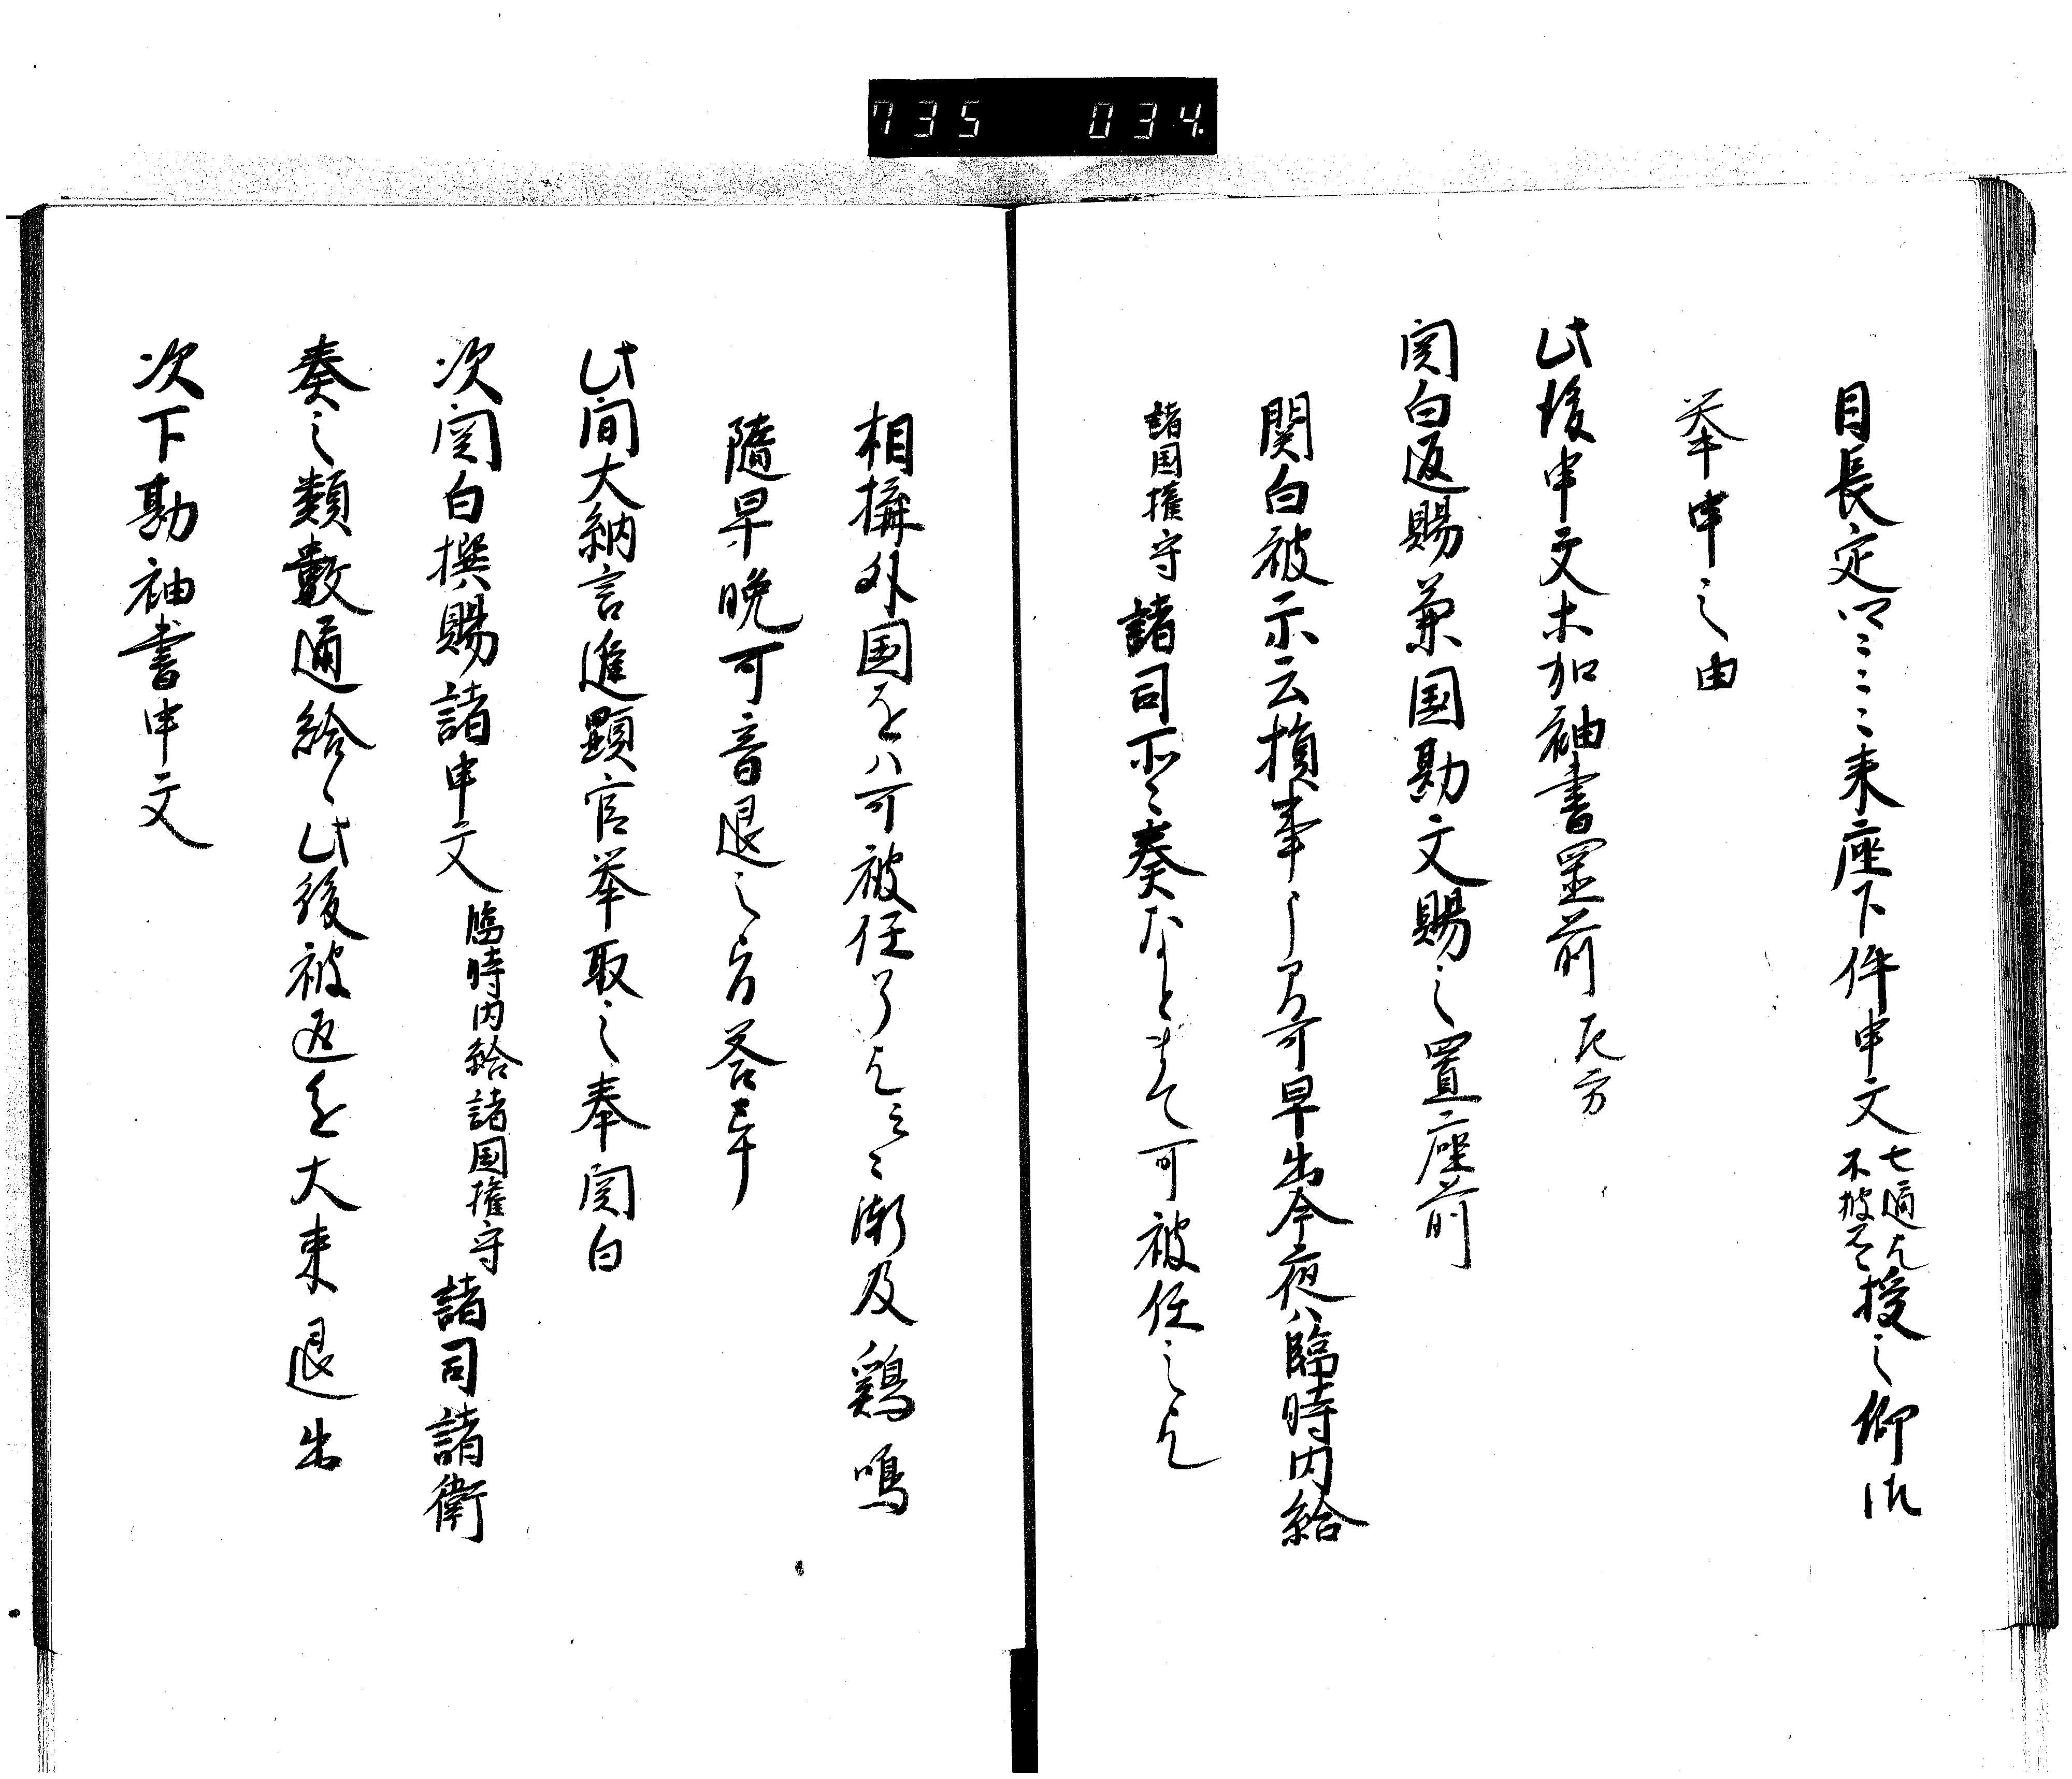 735 034
目長定卿〻〻〻来座下件申文七通也不披見之授之仰清
挙申之由
此後申文木加袖書置前左方
関白返賜兼国勘文賜之置座前
関白被示云損事了可早出今夜ハ臨時内給
諸国権守諸司所〻奏なとまて可被任之也
相撲外国をハ可被任了也〻〻漸及鶏鳴
随早晩可音退之旨答畢
此間大納言進顕官挙取之奉関白
次関白撰賜諸申文臨時内給諸国権守諸司諸衛
奏之類数通給〻此後被返遣大束退出
次下勘袖書申文